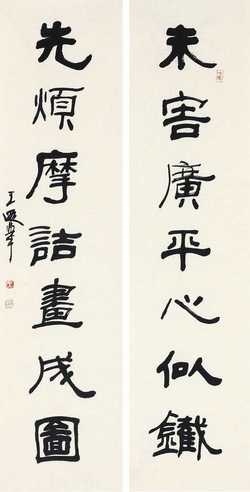 未害廣平心似鐵
先煩摩詰畫成圖
王遐舉